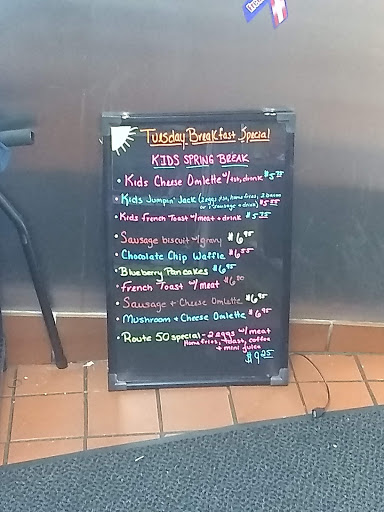 Tuesday Breakfast Special
KIDS SPRING BREAK
• Kids Cheese Omlette w/tst, drink
• Kids Jumpin' Jack (2 eggs, homefries, 2 bacon
or 1 sausage + drink)
• Kids French Toast w/meat + drink
• Sausage biscuit w/gravy $6.95
• Chocolate Chip Waffle
• Blueberry Pancakes $6.95
• French Toast w/ meat
• Sausage + Cheese Omlette $6.95
• Mushroom + Cheese Omlette $6.95
• Route 50 special - 2 eggs w/ meat
Home fries, toast, coffee
+ mini juice
$9.25